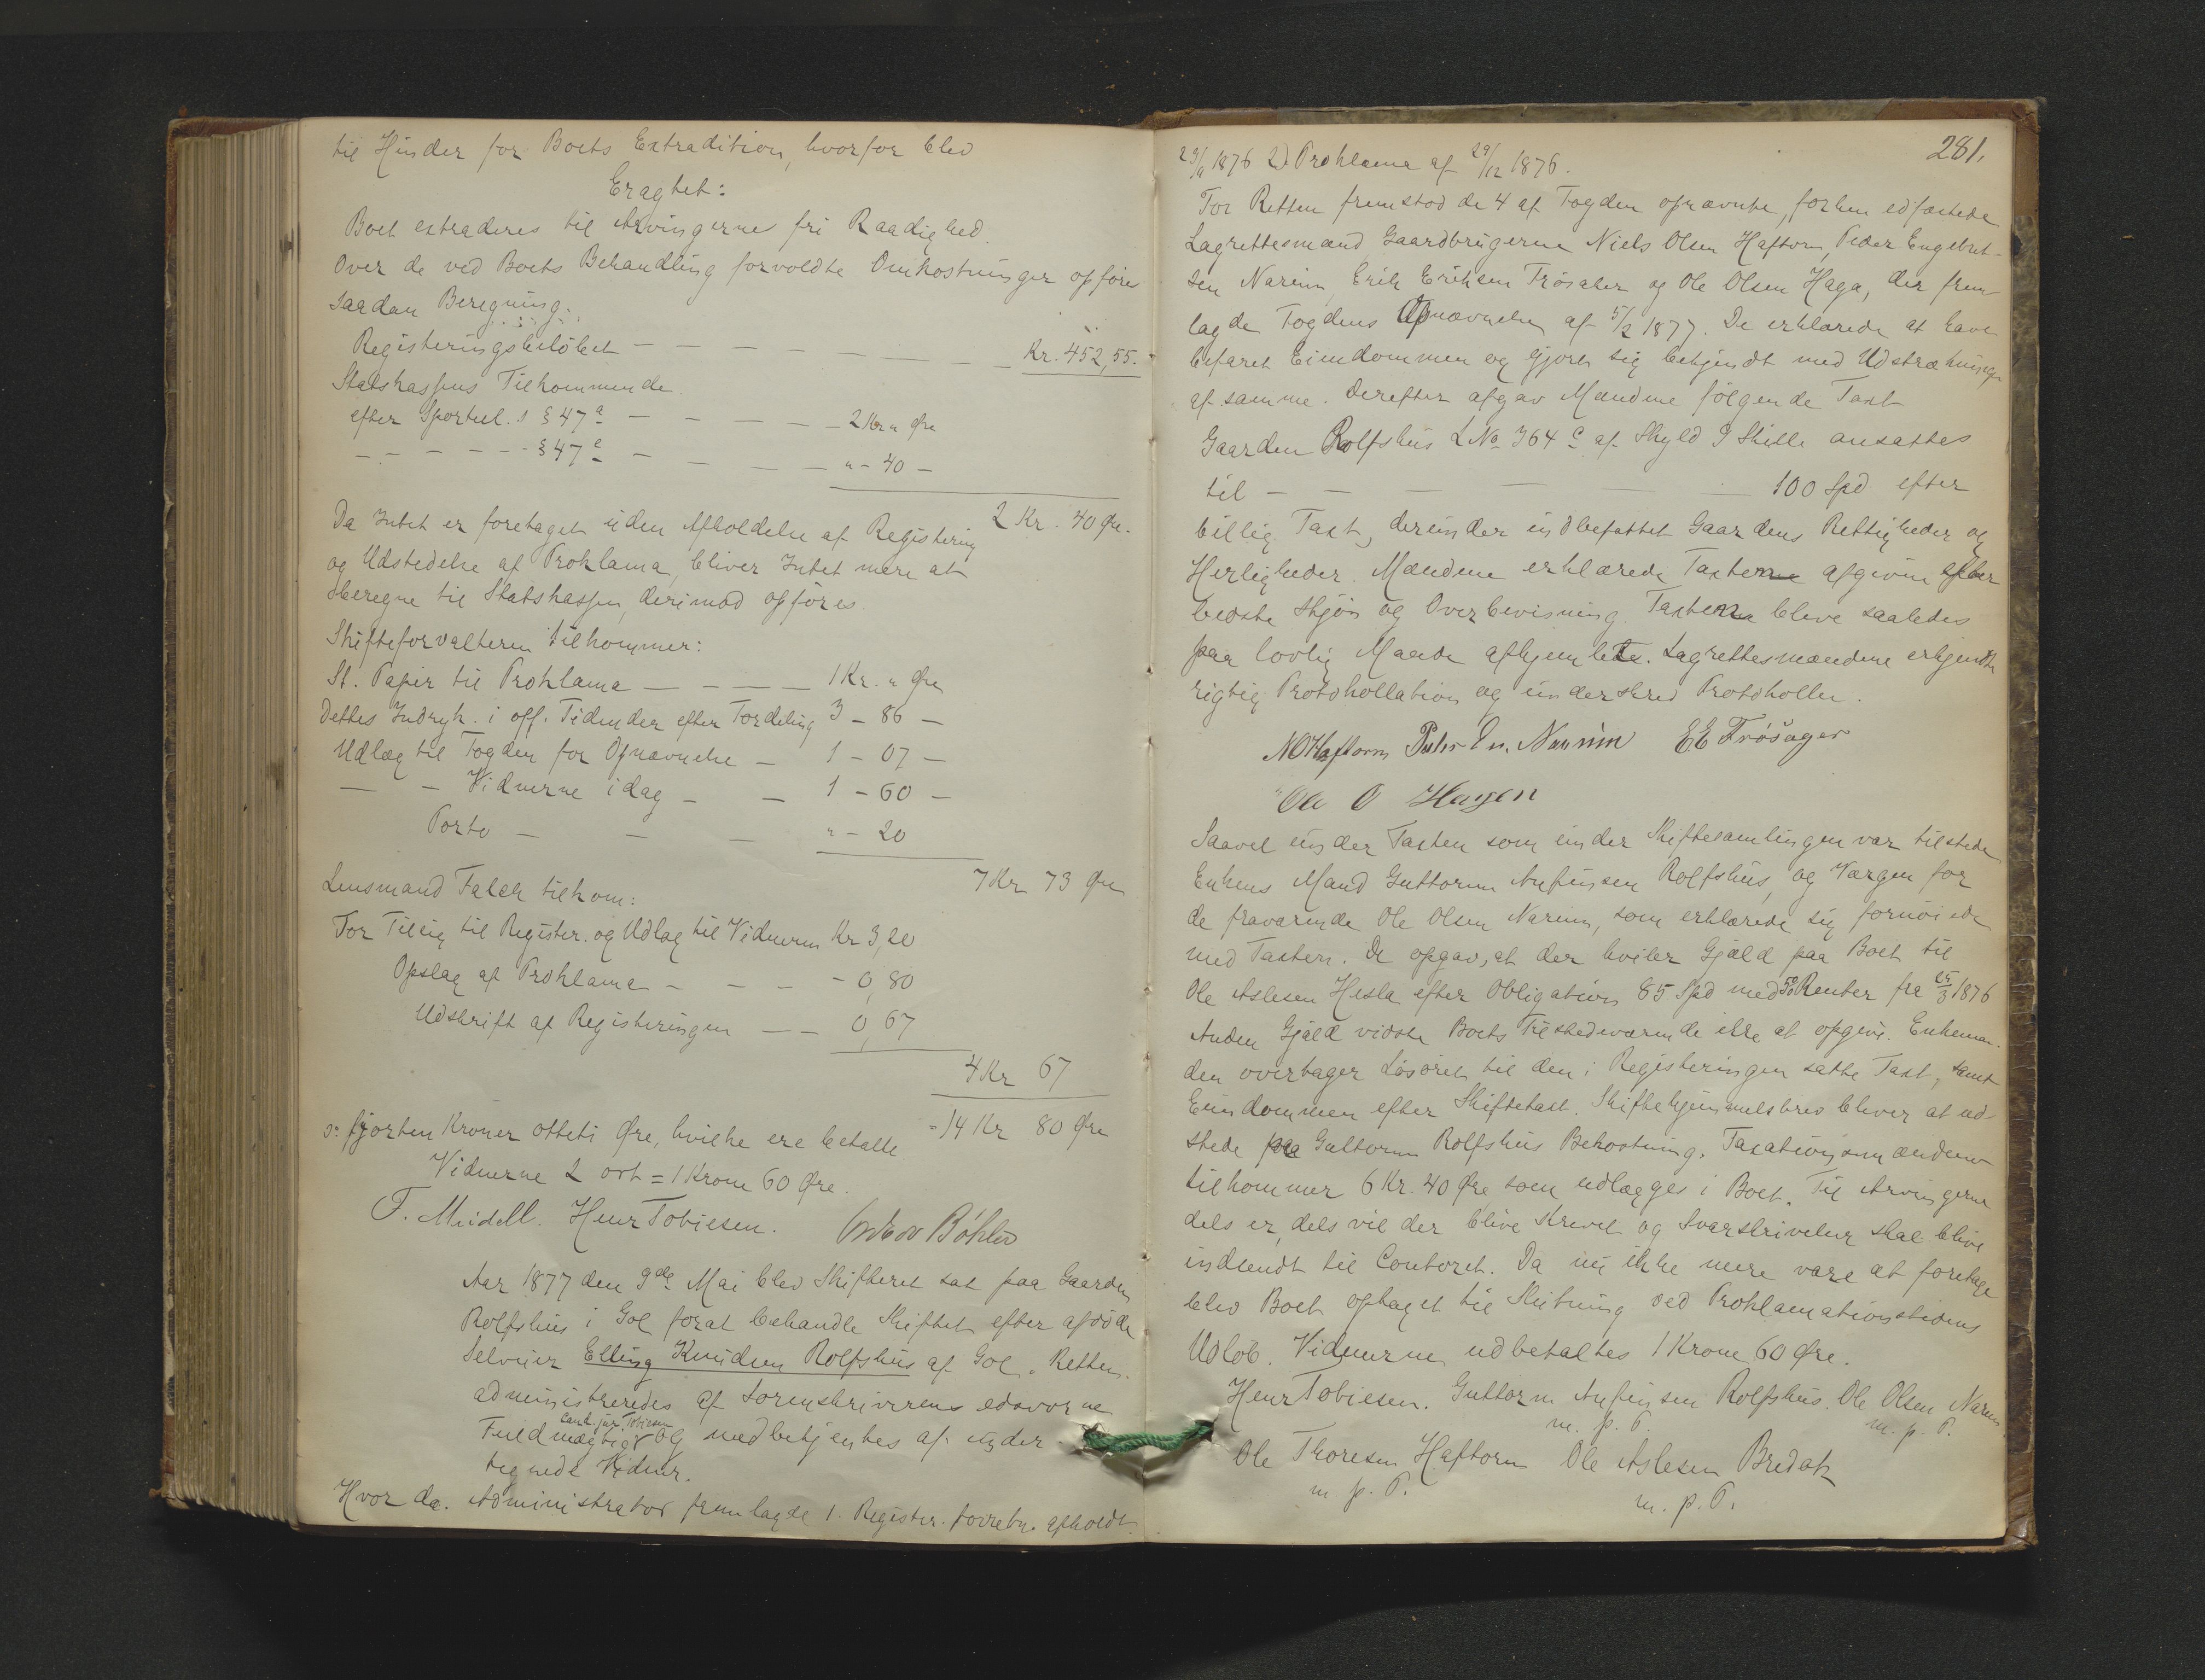 til Hinder for Boets Extradition, hvorfor blev
Eragtet:
Boet extraderes til Arvingernes fri Raadighed.
Over de ved Boets Behandling forvoldte Omkostninger opføre
saadan Beregning.
Registeringsbeløbet — — — — — — — — Kr. 452,55.
Statskassens Tilkommende
efter Sportul. l § 47 a — — — — — 2 Kr „ Øre
— — — — — § 47 c — — — — „ - 40 —
2 Kr. 40 Øre.
Da Intet er foretaget uden Afholdelse af Registering
og Udstedelse af Proklama, bliver Intet mere at
beregne til Statskassen, derimod opføres.
Skifteforvalteren tilkommer:
St. Papir til Proklama — — — — 1 Kr. „ Øre
Dettes Indryk. i off. Tidender efter Fordeling 3 - 86 —
Udlæg til Fogden for Opnævnelse — 1 - 07 —
— — Vidnerne idag — — 1 - 60 —
Porto — — — „ - 20
7 Kr 73 Øre
Lensmand Falch tilkom:
For Tilsig til Register. og Udlæg til Vidnerne Kr 3,20
Opslag af Proklama — — — - 0,80
Udskrift af Registeringen — — 0,67
4 Kr 67
= 14 Kr 80 Øre
ɔ: fjorten Kroner otteti Øre, hvilke ere betalte.
Vidnerne 2 ort = 1 Krone 60 Øre.
F. Meidell. Henr Tobiesen.
Aar 1877 den 9de Mai blev Skifteret sat paa Gaarden
Rolfshus i Gol forat behandle Skiftet efter afdøde
Selveier Elling Knudsen Rolfshus af Gol. Retten
administreredes af Sorenskriverens edsvorne
Fuldmægtig Cand. jur Tobiesen og medbetjentes af under
tegnede Vidner.
Hvor da. Administrator fremlagde 1. Register. forretn. afholdt
281.
29/11 1876 2) Proklama af 29/12 1876.
For Retten fremstod de 4 af Fogden opnævnte, forhen edfæstede
Lagrettesmænd Gaardbrugerne Niels Olsen Haftorn, Peder Engebret-
sen Narum, Erik Eriksen Frøsaker og Ole Olsen Haga, der frem
lagde Fogdens Opnævnelse af 5/2 1877. De erklærede at have
befaret Eiendommen og gjort sig bekjendt med Udstrækningen
af samme. Derefter afgav Mændene følgende Taxt
Gaarden Rolfshus L No 364 c af Skyld 9 Skill. ansattes
til — — — — — — 100 Spd efter
billig Taxt, derunder indbefattet Gaardens Rettigheder og
Herligheder. Mændene erklærede Taxterne afgivne efter
bedste Skjøn og Overbevisning. Taxterne bleve saaledes
paa lovlig Maade afhjemlede. Lagrettesmændene erkjendte
rigtig Protokollation og underskrev Protokollen.
NOHaftorn E E Frøsager
Ole O Hagen
Saavel under Taxten som under Skiftesamlingen var tilstede
Enkens Mand Guttorm Anfinsen Rolfshus, og Værgen for
de fraværende Ole Olsen Narum, som erklærede sig fornøiede
med Taxten. De opgav, at der hviler Gjæld paa Boet til
Ole Aslesen Hesla efter Obligation 85 Spd med 5% Renter fra 25/3 1876
Anden Gjæld vidste Boets Tilstedeværende ikke at opgive. Enkeman-
den overtager Løsøret til den i Registeringen satte Taxt, samt
Eiendommen efter Skiftetaxt. Skiftehjemmelsbrev bliver at ud-
stede paa Guttorm Rolfshus Bekostning. Taxationsmændene
tilkommer 6 Kr. 40 Øre som udlægges i Boet. Til Arvingerne
dels er, dels vil der blive skrevet og Svarskrivelser skal blive
indsendt til Contoret. Da nu ikke mere vare at foretage
blev Boet optaget til Slutning ved Proklamationstidens
Udløb. Vidnerne udbetaltes 1 Krone 60 Øre.
Henr Tobiesen. Guttorm Anfinsen Rolfshus. Ole Olsen Narum
m. p. P. m. p. P.
Ole Thoresen Haftorn Ole Aslesen Bredok
m. p. P. m. p. P.